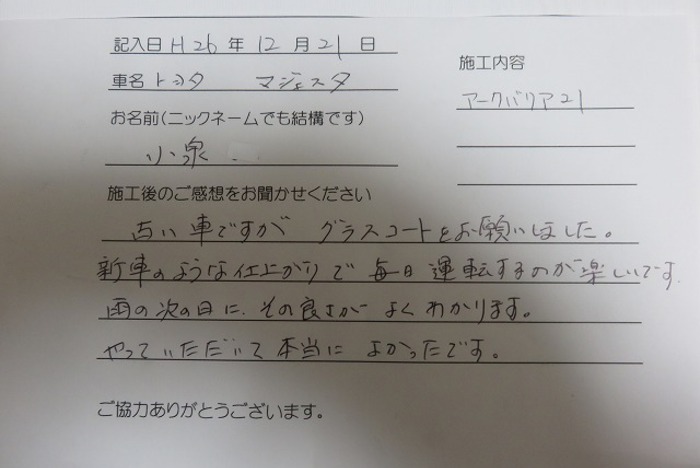 記入日 H26 年 12 月 21 日
車名 トヨタ マジェスタ
お名前(ニックネームでも結構です)
小泉
施工内容
アークバリア21
施工後のご感想をお聞かせください
古い車ですが グラスコートをお願いしました。
新車のような仕上がりで 毎日 運転するのが楽しいです.
雨の次の日に、その良さが よくわかります。
やっていただいて 本当に よかったです。
ご協力ありがとうございます。